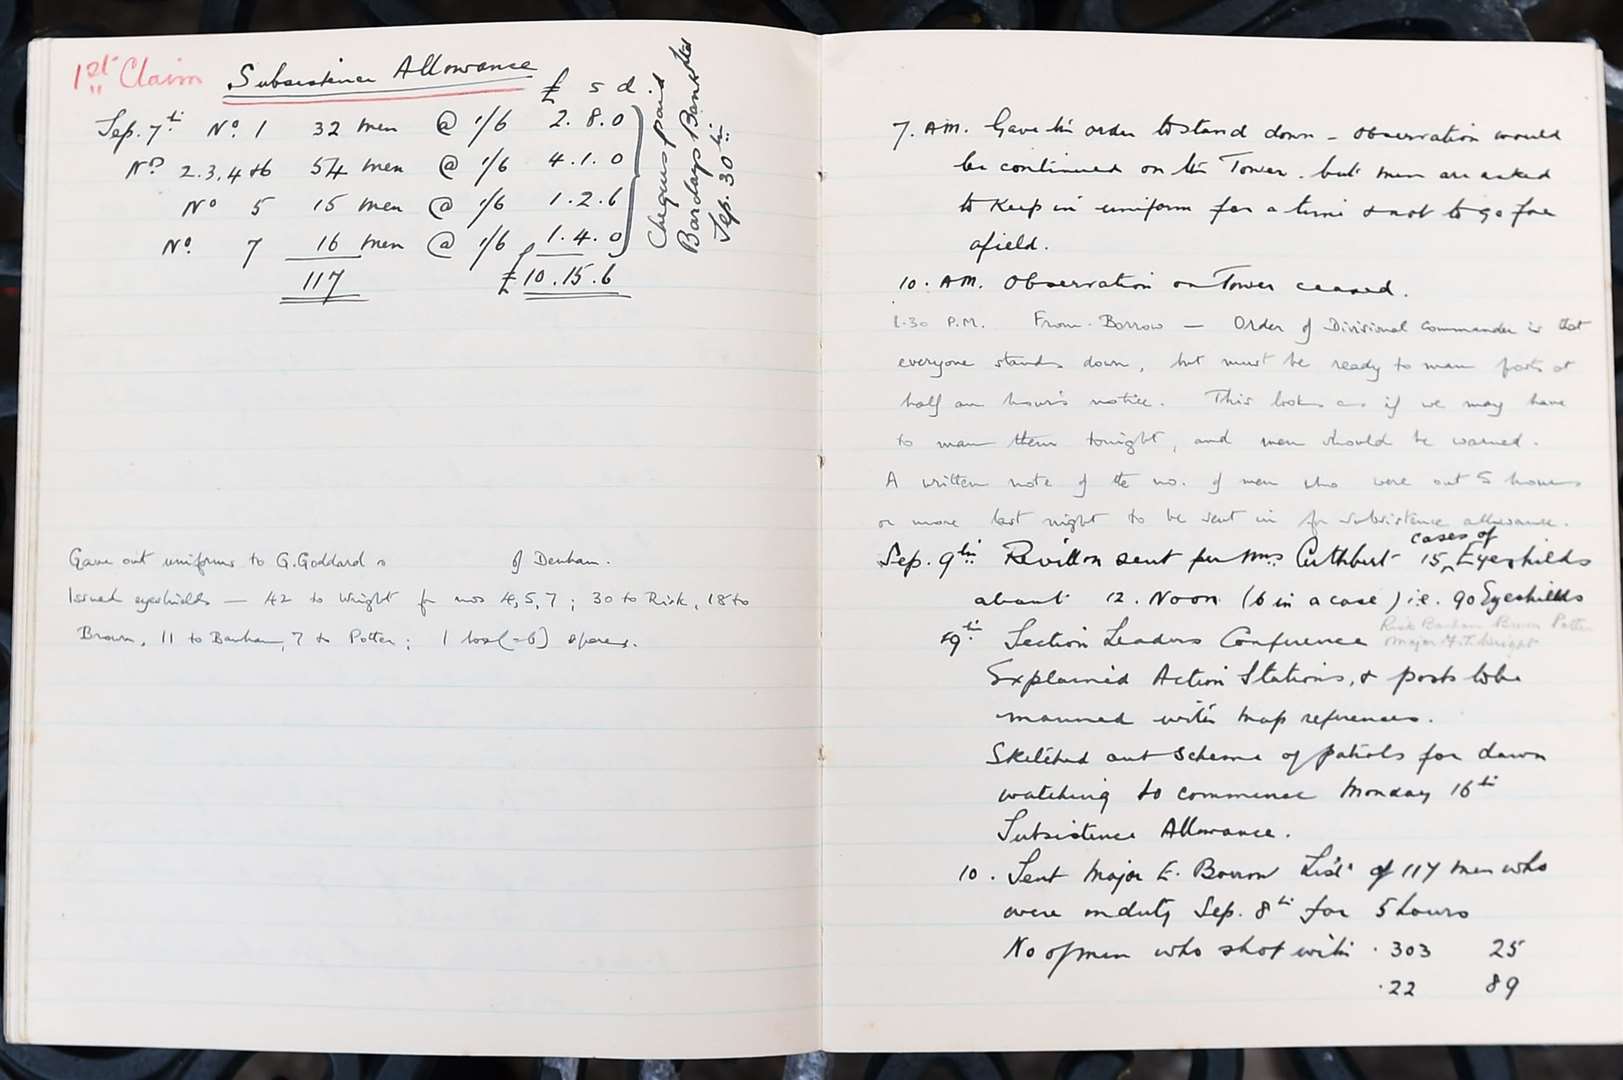 1st Claim Subsistence Allowance
£ s d.
Sep. 7th No. 1 32 men @ 1/6 2. 8. 0
No. 2.3.4 & 6 54 men @ 1/6 4. 1. 0
No 5 15 men @ 1/6 1. 2. 6
No. 7 16 men @ 1/6 1. 4. 0
117 £10. 15. 6
Cheques paid
Barclays Bank Ltd
Sep. 30th
Gave out uniforms to G. Goddard of Denham.
Issued eyeshields — 42 to Wright for nos 4, 5, 7; 30 to Risk, 18 to
Brown, 11 to Banham, 7 to Potter; 1 box (=6) spares.
7. AM. Gave the order to stand down - observation would
be continued on the Tower. but men are asked
to keep in uniform for a time & not to go far
afield.
10. AM. Observation on Tower ceased.
1.30 P.M. From Borrow — Order of Divisional Commander is that
everyone stands down, but must be ready to man posts at
half an hour's notice. This looks as if we may have
to man them tonight, and men should be warned.
A written note of the no. of men who were out 5 hours
or more last night to be sent in for subsistence allowance.
Sep. 9th Revillon sent per Mrs Cuthbert 15 cases of Eyeshields
about 12. Noon (6 in a case) i.e. 90 Eyeshields
9th Section Leaders Conference Risk Banham Brown Potter
Major Wright
Explained Action Stations, & posts to be
manned with map references.
Sketched out scheme of patrols for dawn
watching to commence Monday 16th
Subsistence Allowance.
10. Sent Major E. Borrow List of 117 men who
were on duty Sep. 8th for 5 hours
No of men who shot with .303 25
.22 89